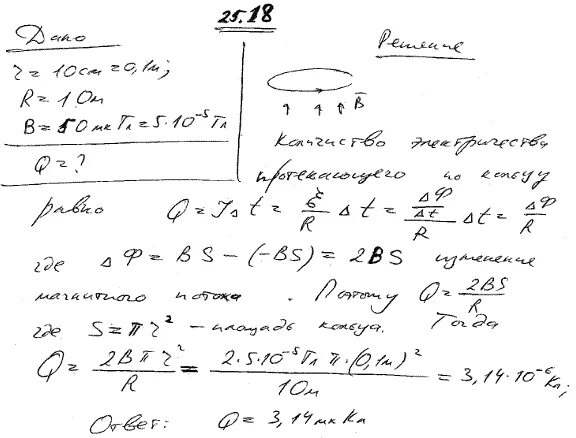 25.18
Дано
r = 10см = 0,1м;
R = 1 Ом
B = 50 мкТл = 5·10⁻⁵ Тл
Q = ?
Решение
B⃗
Количество электричества
протекающего по кольцу
равно Q = IΔt = ξ/R Δt = (ΔФ/Δt)/R Δt = ΔФ/R
где ΔФ = BS − (−BS) = 2BS изменение
магнитного потока. Поэтому Q = 2BS/R
где S = πr² – площадь кольца. Тогда
Q = 2Bπr²/R = 2·5·10⁻⁵Тл π·(0,1м)²/1Ом = 3,14·10⁻⁶ Кл;
Ответ: Q = 3,14 мкКл